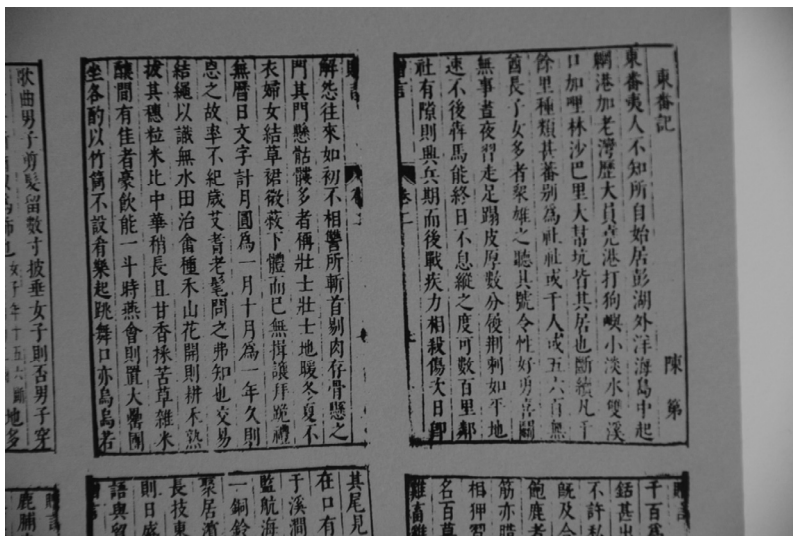 東番記
陳第
東番夷人不知所自始居彭湖外洋海島中起
網港加老灣歷大員堯港打狗嶼小淡水雙溪
口加哩林沙巴里大幫坑皆其居也斷續凡千
餘里種類甚蕃別爲社社或千人或五六百無
酋長子女多者衆雄之聽其號令性好勇喜鬭
無事晝夜習走足蹋皮厚數分履荆刺如平地
速不後犇馬能終日不息縱之度可數百里鄰
社有隙則興兵期而後戰疾力相殺傷次日即
卷二
解怨往來如初不相讐所斬首剔肉存骨懸之
門其門懸骷髏多者稱壯士壯士地暖冬夏不
衣婦女結草裙微蔽下體而已無揖讓拜跪禮
無曆日文字計月圓爲一月十月爲一年久則
忘之故率不紀歲艾耆老髦問之弗知也交易
結繩以識無水田治畬種禾山花開則耕禾熟
拔其穗粒米比中華稍長且甘香採苦草雜米
釀間有佳者豪飲能一斗時燕會則置大罍團
坐各酌以竹筒不設肴樂起跳舞口亦烏烏若
歌曲男子剪髮留數寸披垂女子則否男子穿
飾也女子年十五六斷
地多
千百爲
銛甚出
不許私
既及合
飽鹿者
筋亦腊
相狎習
名百草
雞畜雞
其尾見
在口有
于溪澗
監航海
一銅鈴
聚居濱
長技東
則日盛
語與貿
鹿脯